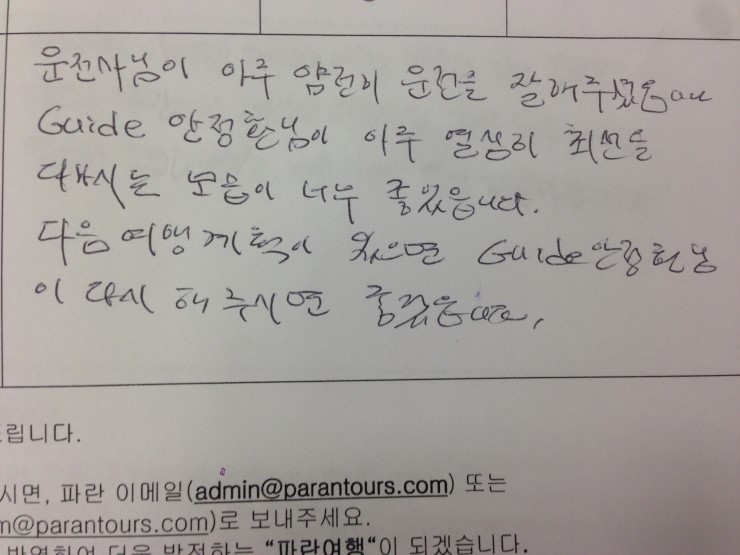 운전사님이 아주 얌전히 운전을 잘해주셨읍니다
Guide 안정환님이 아주 열심히 최선을
다하시는 모습이 너무 좋았읍니다.
다음 여행계획이 있으면 Guide 안정환님
이 다시 해 주시면 좋겠읍니다.
드립니다.
시면, 파란 이메일(admin@parantours.com) 또는
n@parantours.com)로 보내주세요.
반영하여 더욱 발전하는 "파란여행"이 되겠습니다.